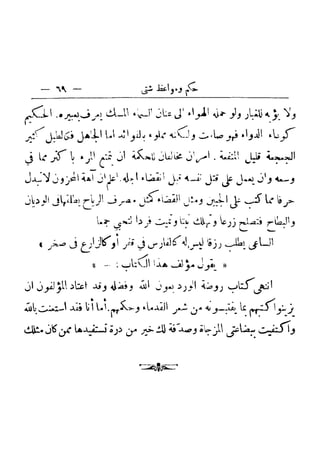 — حكم ومواعظ شتى — ٦٩ —
ولا يؤبه للغبار ولو حمله الهواء الى عنان السماء المسك يعرف بعبيره. الحكيم
كوعاء الدواء فهو صامت ولكنه مملوء بالفوائد اما الجاهل فكالطبل كثير
الجمجمة قليل المنفعة. امران مخالفان للحكمة ان يتمتع المرء باكثر مما في
وسعه وان يعمل على قتل نفسه قبل انقضاء اجله. اعلم ان آهة المحزون لا تبدل
حرفا مما كتب على الجبين ومثل القضاء كمثل مصرف الرياح يطلقها في الوديان
والبطاح فتصلح زرعا وتهلك نبتا وتميت فردا لتحيي جمعا
الساعي يطلب رزقا ليس له كالفارس في قفر أو كالزارع في صخر *
* يقول مؤلف هذا الكتاب : — *
انتهى كتاب روضة الورد بعون الله وفضله وقد اعتاد المؤلفون ان
يزينوا كتبهم بما يقتبسونه من شعر القدماء وحكمهم. أما أنا فقد استعنت بالله
واكتفيت ببضاعتي المزجاة وصدفة لك خير من درة تستفيدها ممن كان مثلك